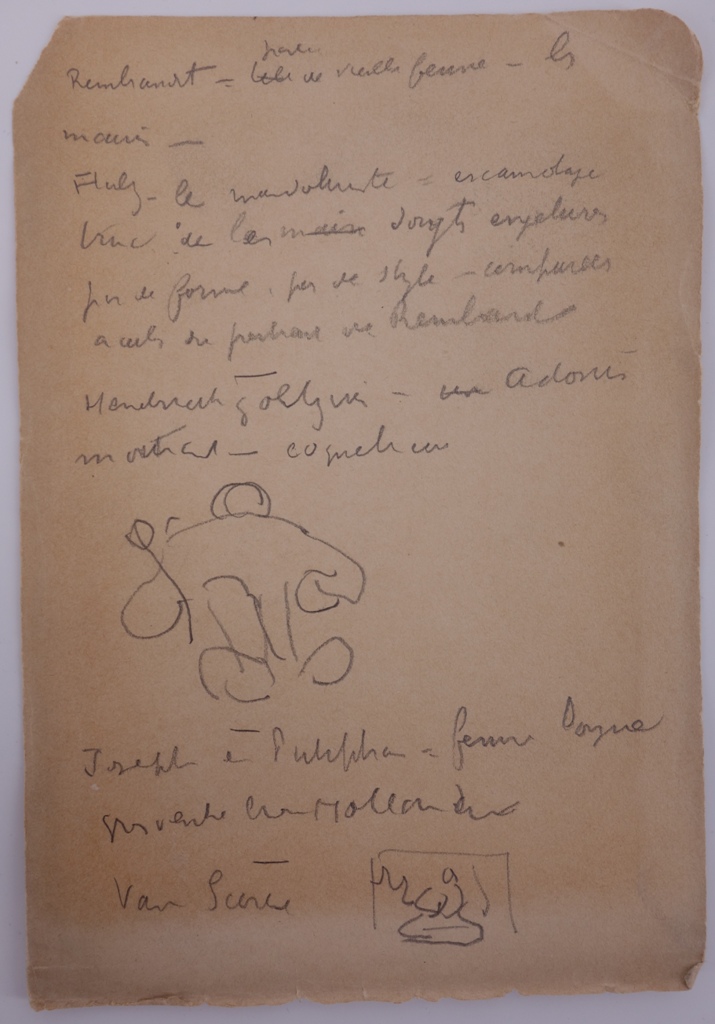 Rembrandt = de vieille femme - les
mains -
Hals - le mandoliniste = escamotage
truc de les main doigts engelures
pas de forme, pas de style - comparées
a celles du portrait de Rembrand
Hendrick Goltzius - un Adonis
mourant - coquelicau
Joseph et Putiphar = femme
gros ventre Hollandais
Van